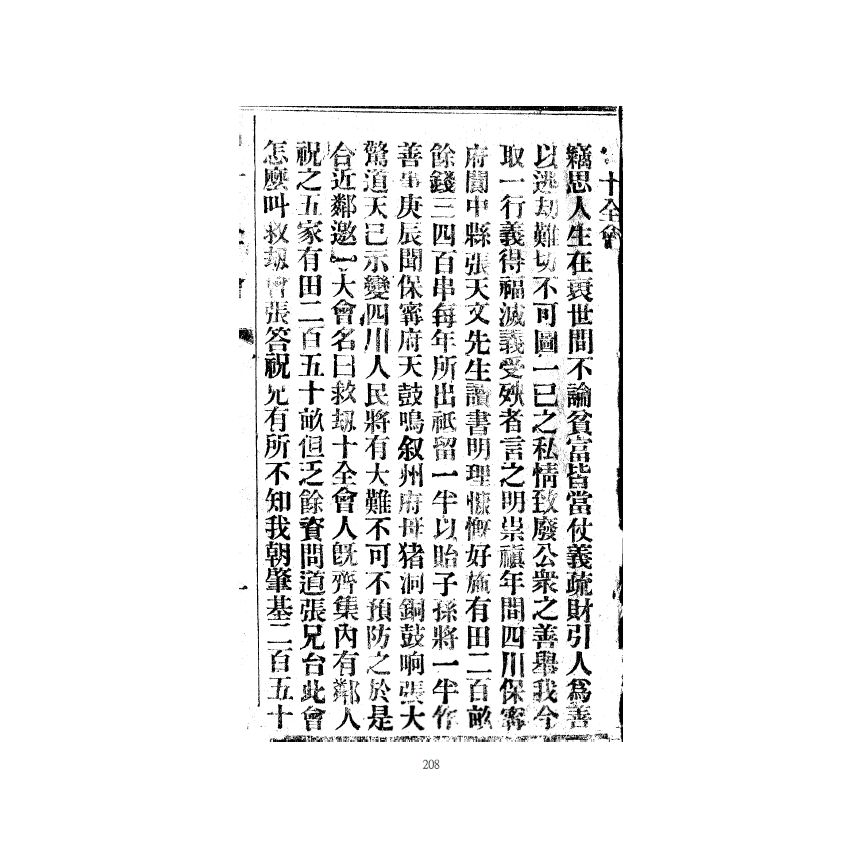 十全會
竊思人生在衰世間不論貧富皆當仗義疏財引人爲善
以逃劫難切不可圖一己之私情致廢公衆之善舉我今
取一行義得福滅義受殃者言之明崇禎年間四川保甯
府閬中縣張天文先生讀書明理慷慨好施有田二百畝
餘錢三四百串每年所出祇留一半以貽子孫將一半作
善事庚辰聞保甯府天鼓鳴叙州府母猪洞銅鼓响張大
驚道天已示變四川人民將有大難不可不預防之於是
合近鄰邀一大會名曰救刼十全會人旣齊集內有鄰人
祝之五家有田二百五十畝但乏餘資問道張兄台此會
怎麼叫救刼會張答祝兄有所不知我朝肇基二百五十
208